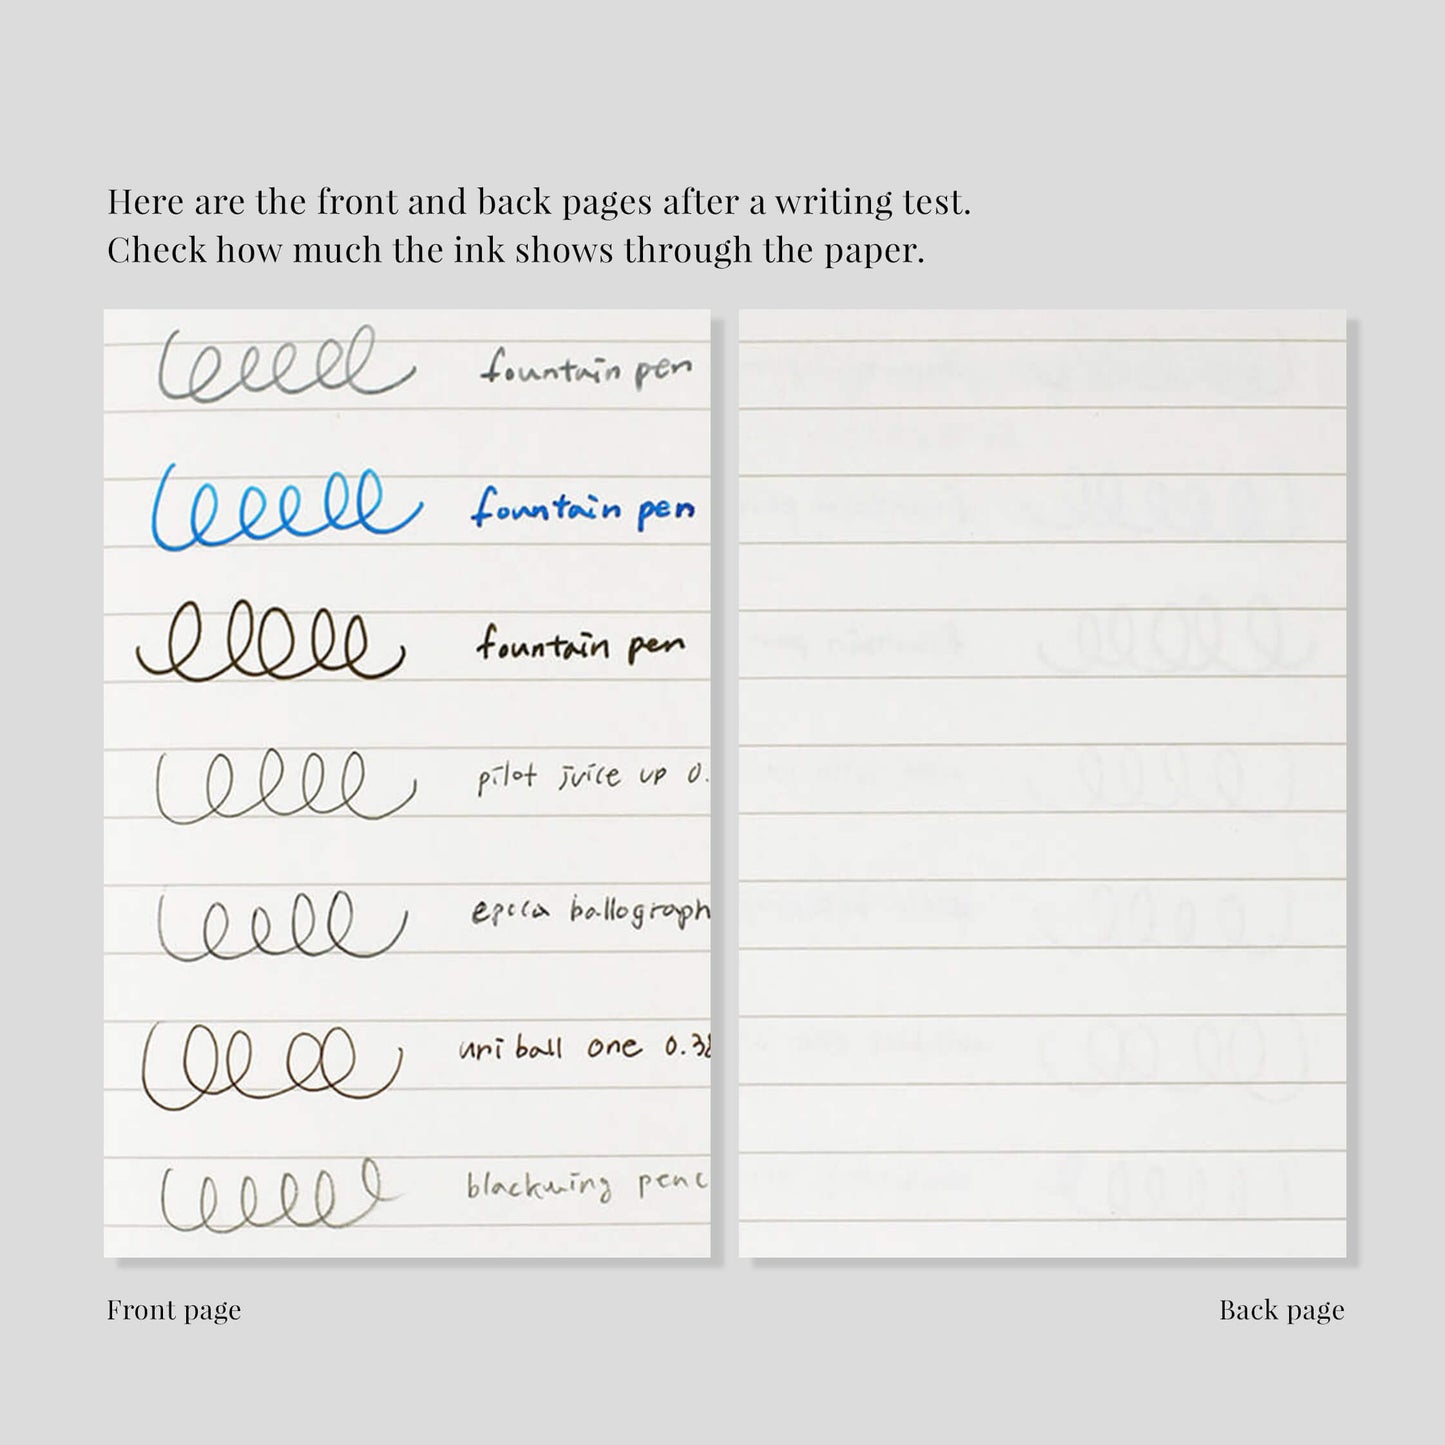 Here are the front and back pages after a writing test.
Check how much the ink shows through the paper.
fountain pen
fountain pen
fountain pen
pilot juice up 0.
epoca ballograph
uni ball one 0.38
blackwing penc
Front page
Back page